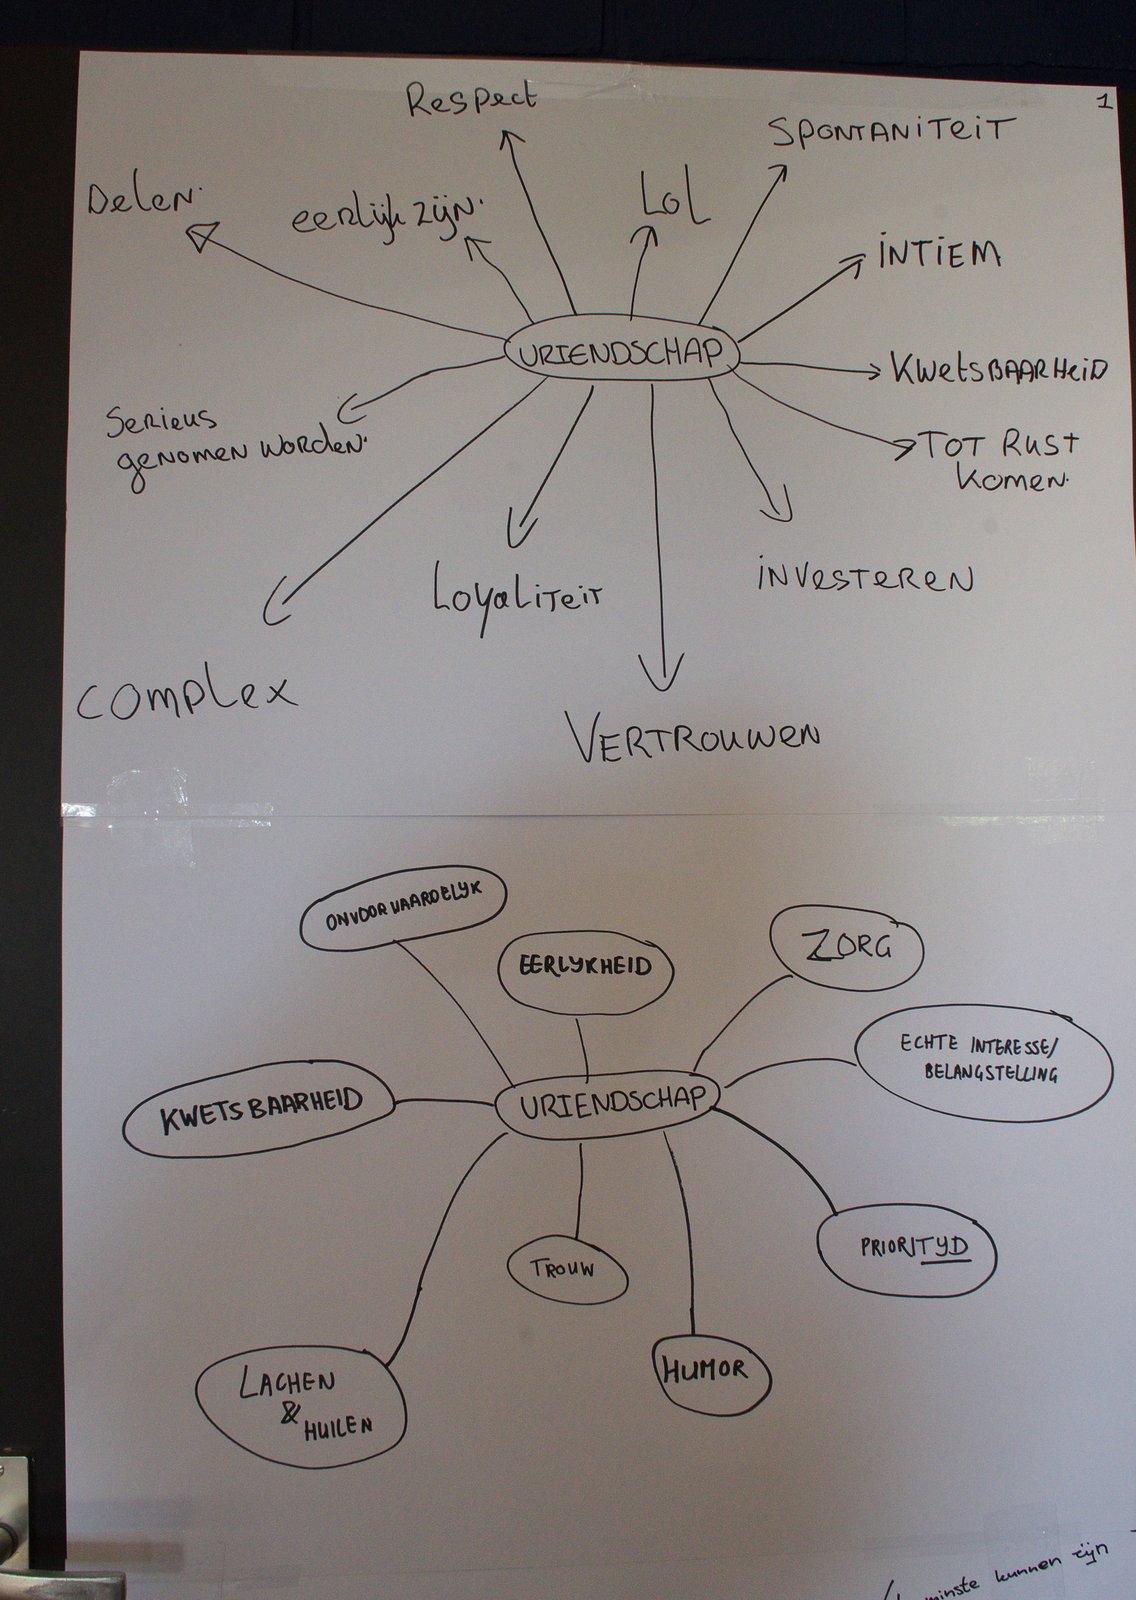 1
Respect
SPONTANITEIT
Delen.
eerlijk zijn.
LOL
INTIEM
VRIENDSCHAP
KWETSBAARHEID
Serieus
genomen worden.
TOT RUST
Komen.
Loyaliteit
INVESTEREN
COMPLEX
VERTROUWEN
ONVOORWAARDELYK
EERLYKHEID
ZORG
ECHTE INTERESSE/
BELANGSTELLING
KWETSBAARHEID
VRIENDSCHAP
TROUW
PRIORITYD
LACHEN
&
HUILEN
HUMOR
minste kunnen zijn